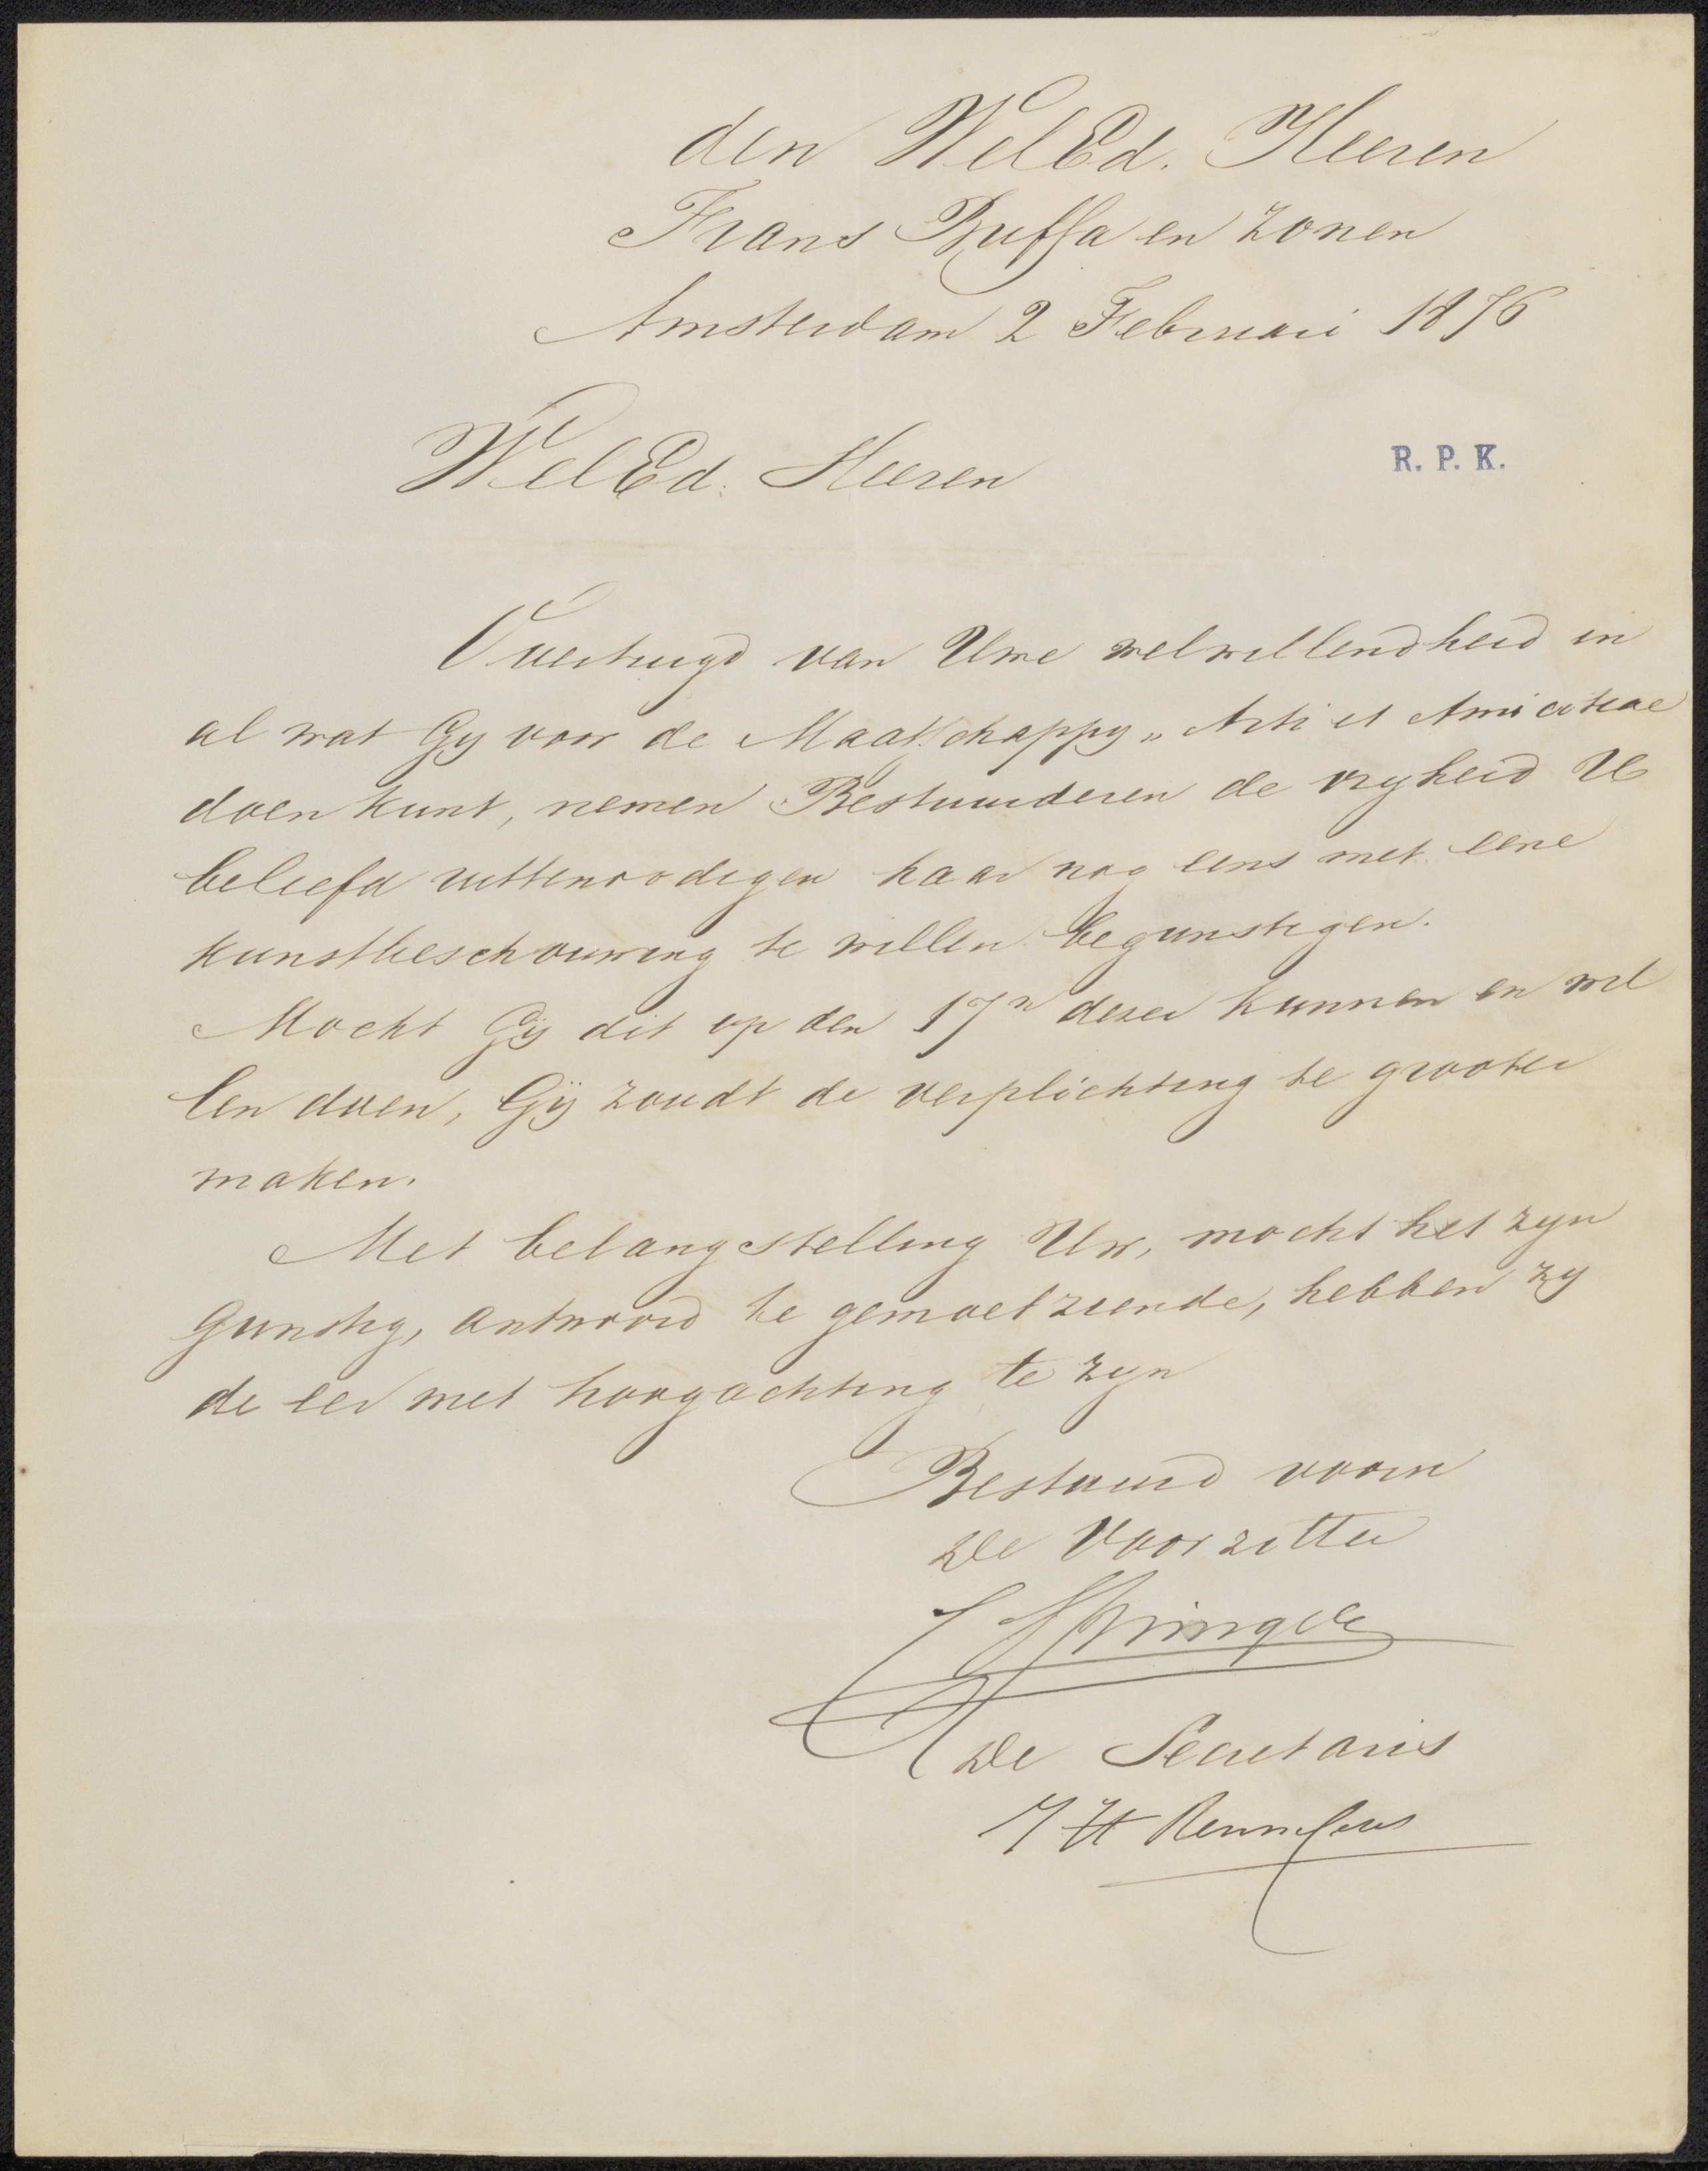 den WelEd. Heeren
Frans Buffa en Zonen
Amsterdam 2 Februari 1876
WelEd. Heeren
R. P. K.
Overtuigd van Uwe welwillendheid in
al wat Gy voor de Maatschappy „Arti et Amicitiae
doen kunt, nemen Bestuurderen de vryheid U
beleefd uittenoodigen haar nog eens met eene
kunstbeschouwing te willen begunstigen.
Mocht Gij dit op den 17n dezer kunnen en wil
len doen, Gij zoudt de verplichting te grooter
maken.
Met belangstelling Uw, mocht het zyn
gunstig, antwoord te gemoet ziende, hebben zy
de eer met hoogachting te zyn
Bestuurd voorn
De Voorzitter
C Springer
De Secretaris
J H Rennefeld